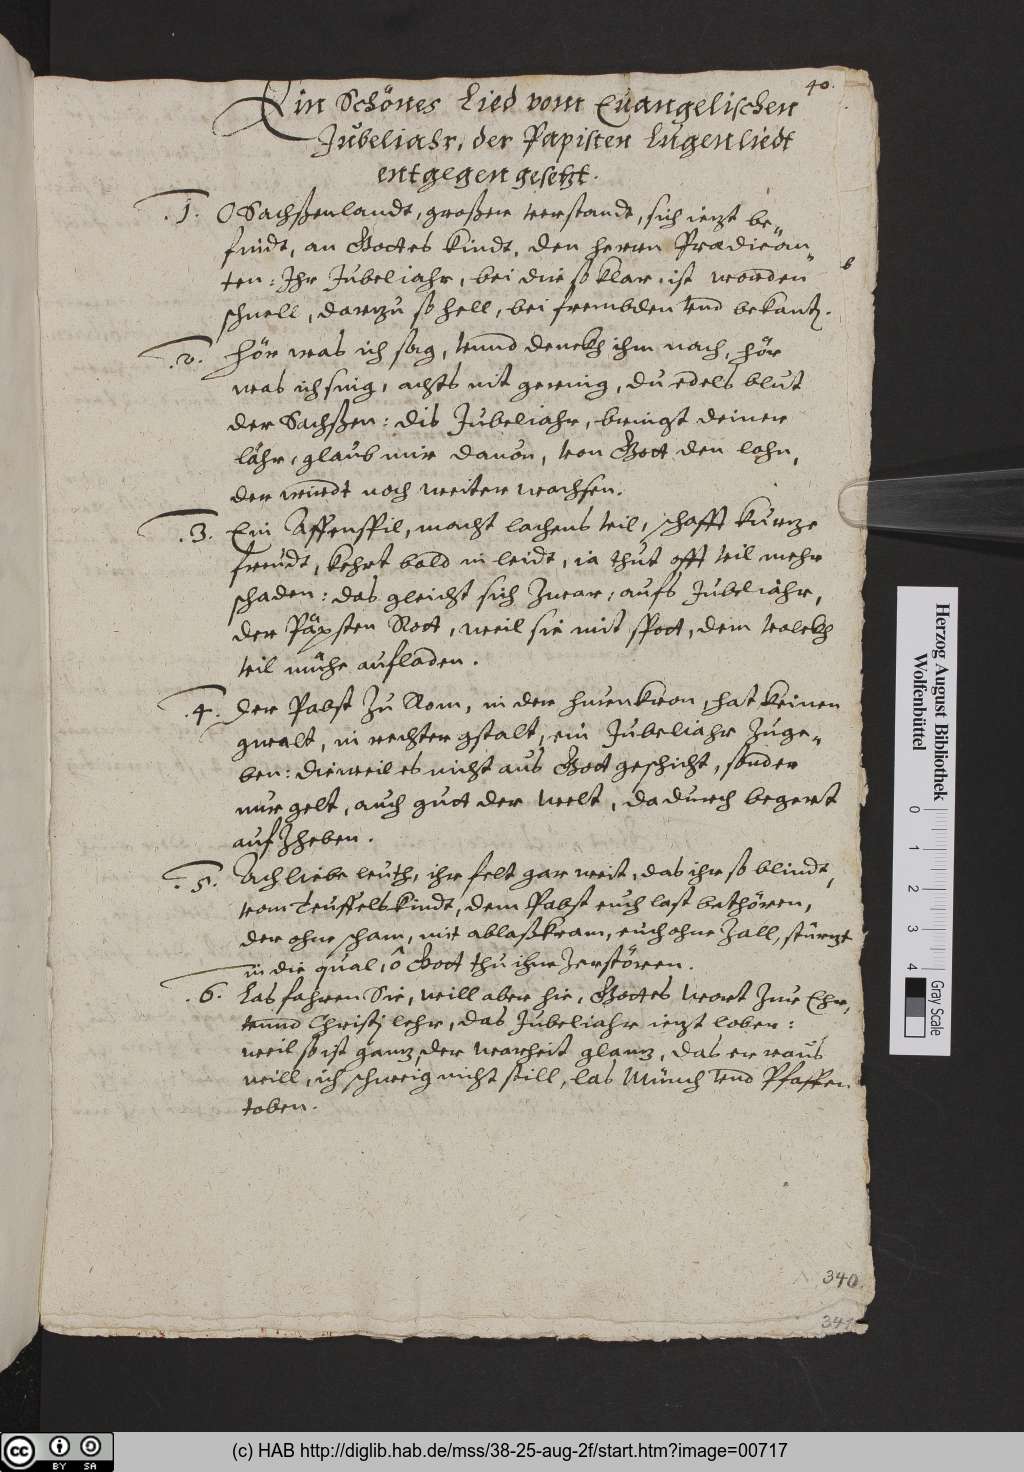 40.
Ein Schönes Lied vom Euangelischen
Jubeliahr, der Papisten Lugenliedt
entgegen gesetzt.
.1. O Sachßenlandt, großer verstandt, sich ietzt be„
findt, an Gottes kindt, den herrn Prædican„
ten: Ihr Jubeliahr, bei die so klar, ist worden
schnell, darzu so hell, bei frembden vnd bekanten.
.2. Hör was ich sag, vnnd denckh ihm nach, hör
was ich sing, achts nit gering, du edels blut
der Sachßen: dis Jubeliahr, bringt deiner
lähr, glaub mir dauon, von Gott den lohn,
der würdt noch weiter wachsen.
.3. Ein Affenspil, macht lachens viel, schafft kurtze
freüdt, kehrt bald in leidt, ia thut offt viel mehr
schaden: das gleicht sich zwar: aufs Jubeliahr,
der Päpsten Rott, weil sie mit spott, dem volckh
viel mühe aufladen.
.4. Der Pabst zu Rom, in der hurenkron, hat keinen
gwalt, in rechter gstalt, ein Jubeliahr zuge„
ben: dieweil es nicht aus Gott geschicht, sonder
nur gelt, auch gutt der welt, dadurch begert
aufzheben.
.5. Ach liebe leuth, ihr felt gar weit, das ihr so blindt,
vom Teuffelskindt, dem Pabst euch last bethören,
der ohne scham, mit ablaßkram, euch ohne zall, stürtzt
in die qual, ô Gott thu ihm zerstören.
.6. Las fahren Sie, will aber hie, Gottes wort zur Ehr,
vnnd Christi lehr, das Jubeliahr ietzt loben:
weil so ist gantz, der warheit glantz, das er raus
will, ich schweig nicht still, las Münch vnd Pfaffen
toben.
340
341
Herzog August Bibliothek
Wolfenbüttel
0 1 2 3 4
Gray Scale
cc BY SA
(c) HAB http://diglib.hab.de/mss/38-25-aug-2f/start.htm?image=00717